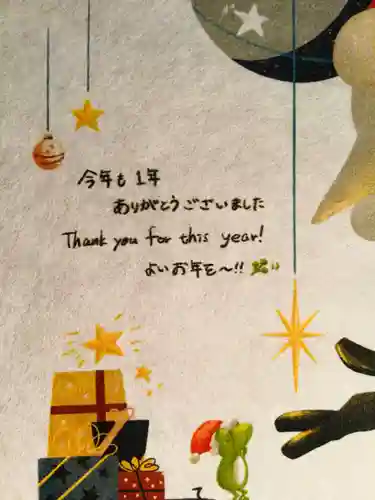 今年も1年
ありがとうございました
Thank you for this year!
よいお年を〜!!